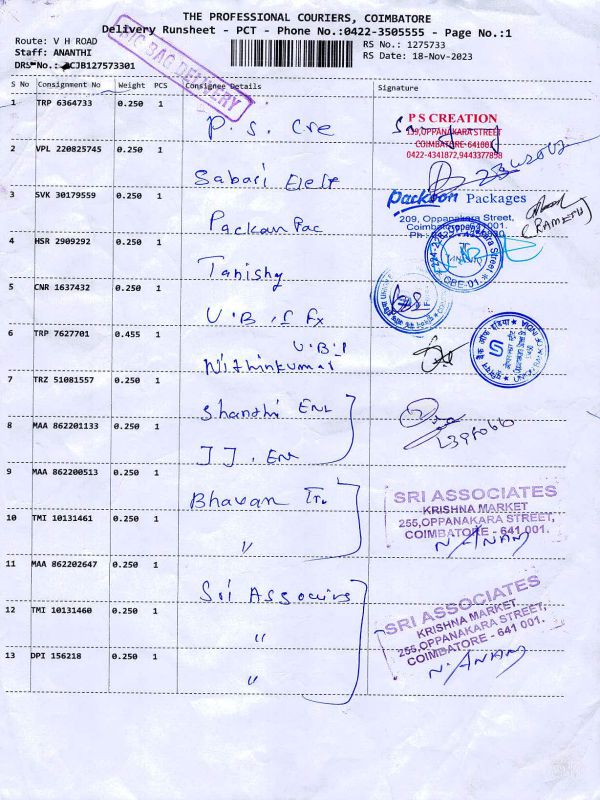 THE PROFESSIONAL COURIERS, COIMBATORE
Delivery Runsheet - PCT - Phone No.:0422-3505555 - Page No.:1
Route: V H ROAD
Staff: ANANTHI
DRS No.: CJB127573301
BAG DELIVERY
RS No.: 1275733
RS Date: 18-Nov-2023
S No Consignment No Weight PCS Consignee Details Signature
1 TRP 6364733 0.250 1 P. S. Cre
P S CREATION
139,OPPANAKARA STREET
COIMBATORE-641001
0422-4341872,9443377898
2 VPL 220825745 0.250 1 Sabari Elect
3 SVK 30179559 0.250 1 Packan Pac
Packson Packages
209, Oppanakara Street,
Coimbatore
(RAMESH)
4 HSR 2909292 0.250 1 Tanishq
CBE-01.
5 CNR 1637432 0.250 1 U.B. of Fx
6 TRP 7627701 0.455 1 U.B.I
Nithinkumar
7 TRZ 51081557 0.250 1 Shanthi Ent
8 MAA 862201133 0.250 1 JJ. Ent
9 MAA 862200513 0.250 1 Bhavan Tr.
SRI ASSOCIATES
KRISHNA MARKET
255,OPPANAKARA STREET,
COIMBATORE - 641 001.
N. ANAND
10 TMI 10131461 0.250 1 "
11 MAA 862202647 0.250 1 Sri Associates
12 TMI 10131460 0.250 1 "
SRI ASSOCIATES
KRISHNA MARKET,
255,OPPANAKARA STREET,
COIMBATORE - 641 001.
N. ANAND
13 DPI 156218 0.250 1 "